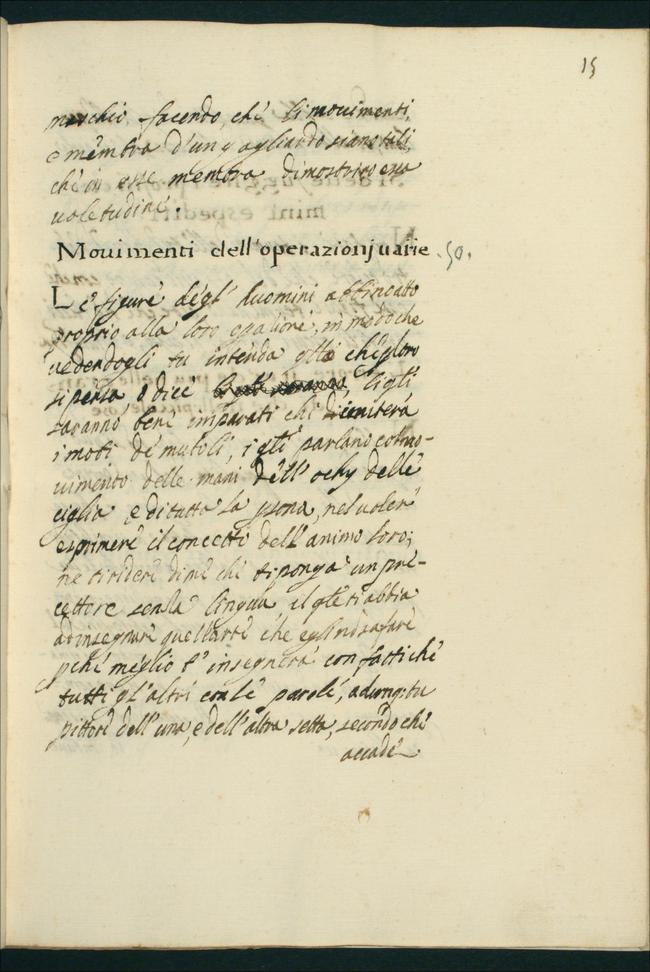 15
facendo, che li mouimenti,
e membra d'un gagliardo siano tali,
che in esse membra dimostrino essa
ualetudine.
Mouimenti dell'operazionj uarie .50.
Le figure degl' huomini abbin atto
proprio alla loro opatione, in modo che
uedendogli tu intenda
si pensa, o dice li qli
saranno bene imparati chi imiterà
i moti de mutoli, i qli parlano col mo-
uimento delle mani dell' ochy delle
ciglia e di tutta la psona, nel uolere
esprimere il concetto dell' animo loro;
ne ti ridere di me che ti ponga un pre-
cettore senza lingua il qle ti abbia
ad insegnare quell'arte che egli non sa fare
pche meglio t' insegnerà con fatti che
tutti gl'altri con le parole, adunq; tu
pittore dell'una, e dell'altra setta, secondo che
accade